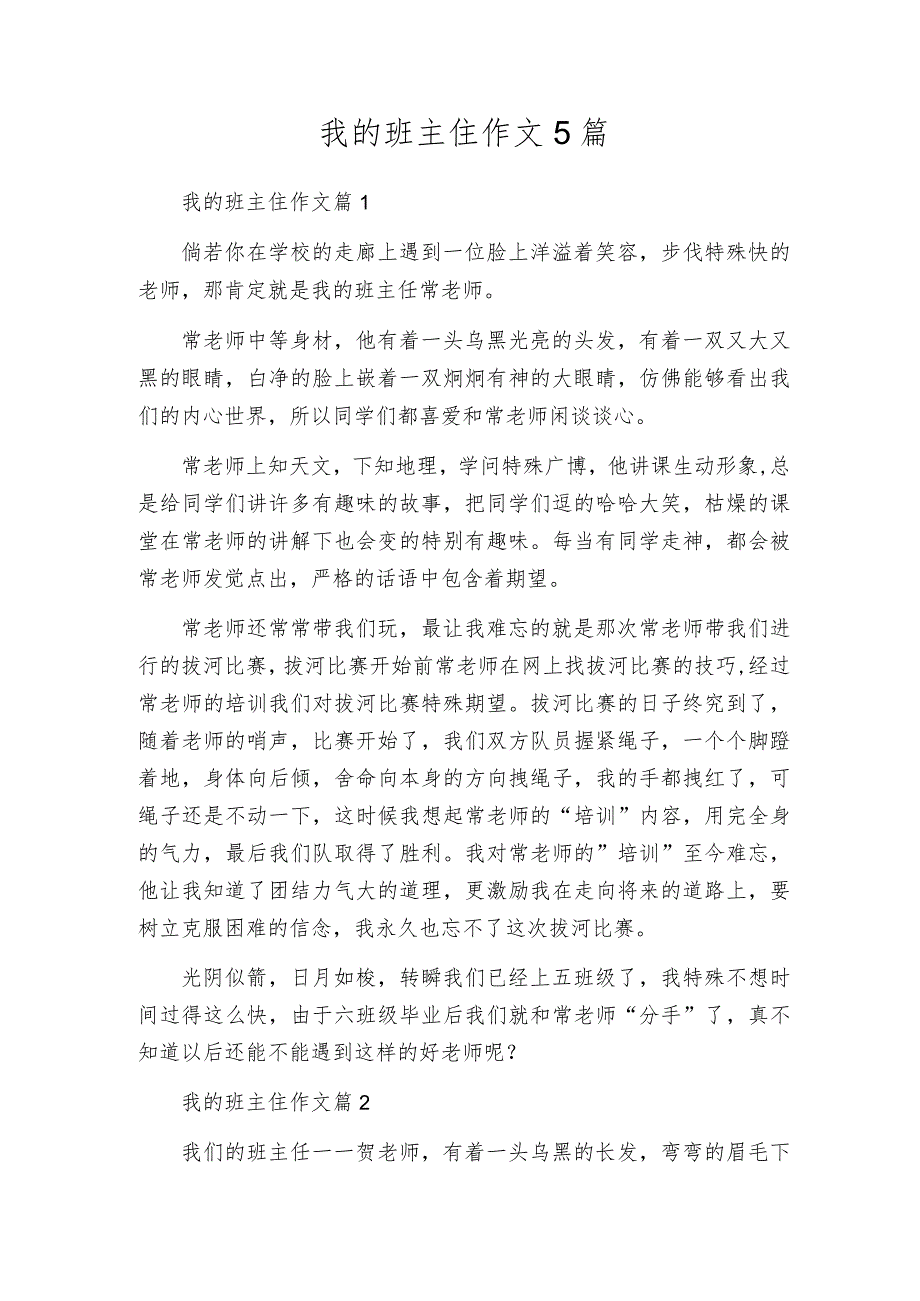 我的班主住作文5篇
我的班主住作文篇1
倘若你在学校的走廊上遇到一位脸上洋溢着笑容，步伐特殊快的
老师，那肯定就是我的班主任常老师。
常老师中等身材，他有着一头乌黑光亮的头发，有着一双又大又
黑的眼睛，白净的脸上嵌着一双炯炯有神的大眼睛，仿佛能够看出我
们的内心世界，所以同学们都喜爱和常老师闲谈谈心。
常老师上知天文，下知地理，学问特殊广博，他讲课生动形象,总
是给同学们讲许多有趣味的故事，把同学们逗的哈哈大笑，枯燥的课
堂在常老师的讲解下也会变的特别有趣味。每当有同学走神，都会被
常老师发觉点出，严格的话语中包含着期望。
常老师还常常带我们玩，最让我难忘的就是那次常老师带我们进
行的拔河比赛,拔河比赛开始前常老师在网上找拔河比赛的技巧,经过
常老师的培训我们对拔河比赛特殊期望。拔河比赛的日子终究到了，
随着老师的哨声，比赛开始了，我们双方队员握紧绳子，一个个脚蹬
着地，身体向后倾，舍命向本身的方向拽绳子，我的手都拽红了，可
绳子还是不动一下，这时候我想起常老师的“培训”内容，用完全身
的气力，最后我们队取得了胜利。我对常老师的”培训”至今难忘，
他让我知道了团结力气大的道理，更激励我在走向将来的道路上，要
树立克服困难的信念，我永久也忘不了这次拔河比赛。
光阴似箭，日月如梭，转瞬我们已经上五班级了，我特殊不想时
间过得这么快，由于六班级毕业后我们就和常老师“分手”了，真不
知道以后还能不能遇到这样的好老师呢？
我的班主住作文篇2
我们的班主任一一贺老师，有着一头乌黑的长发，弯弯的眉毛下